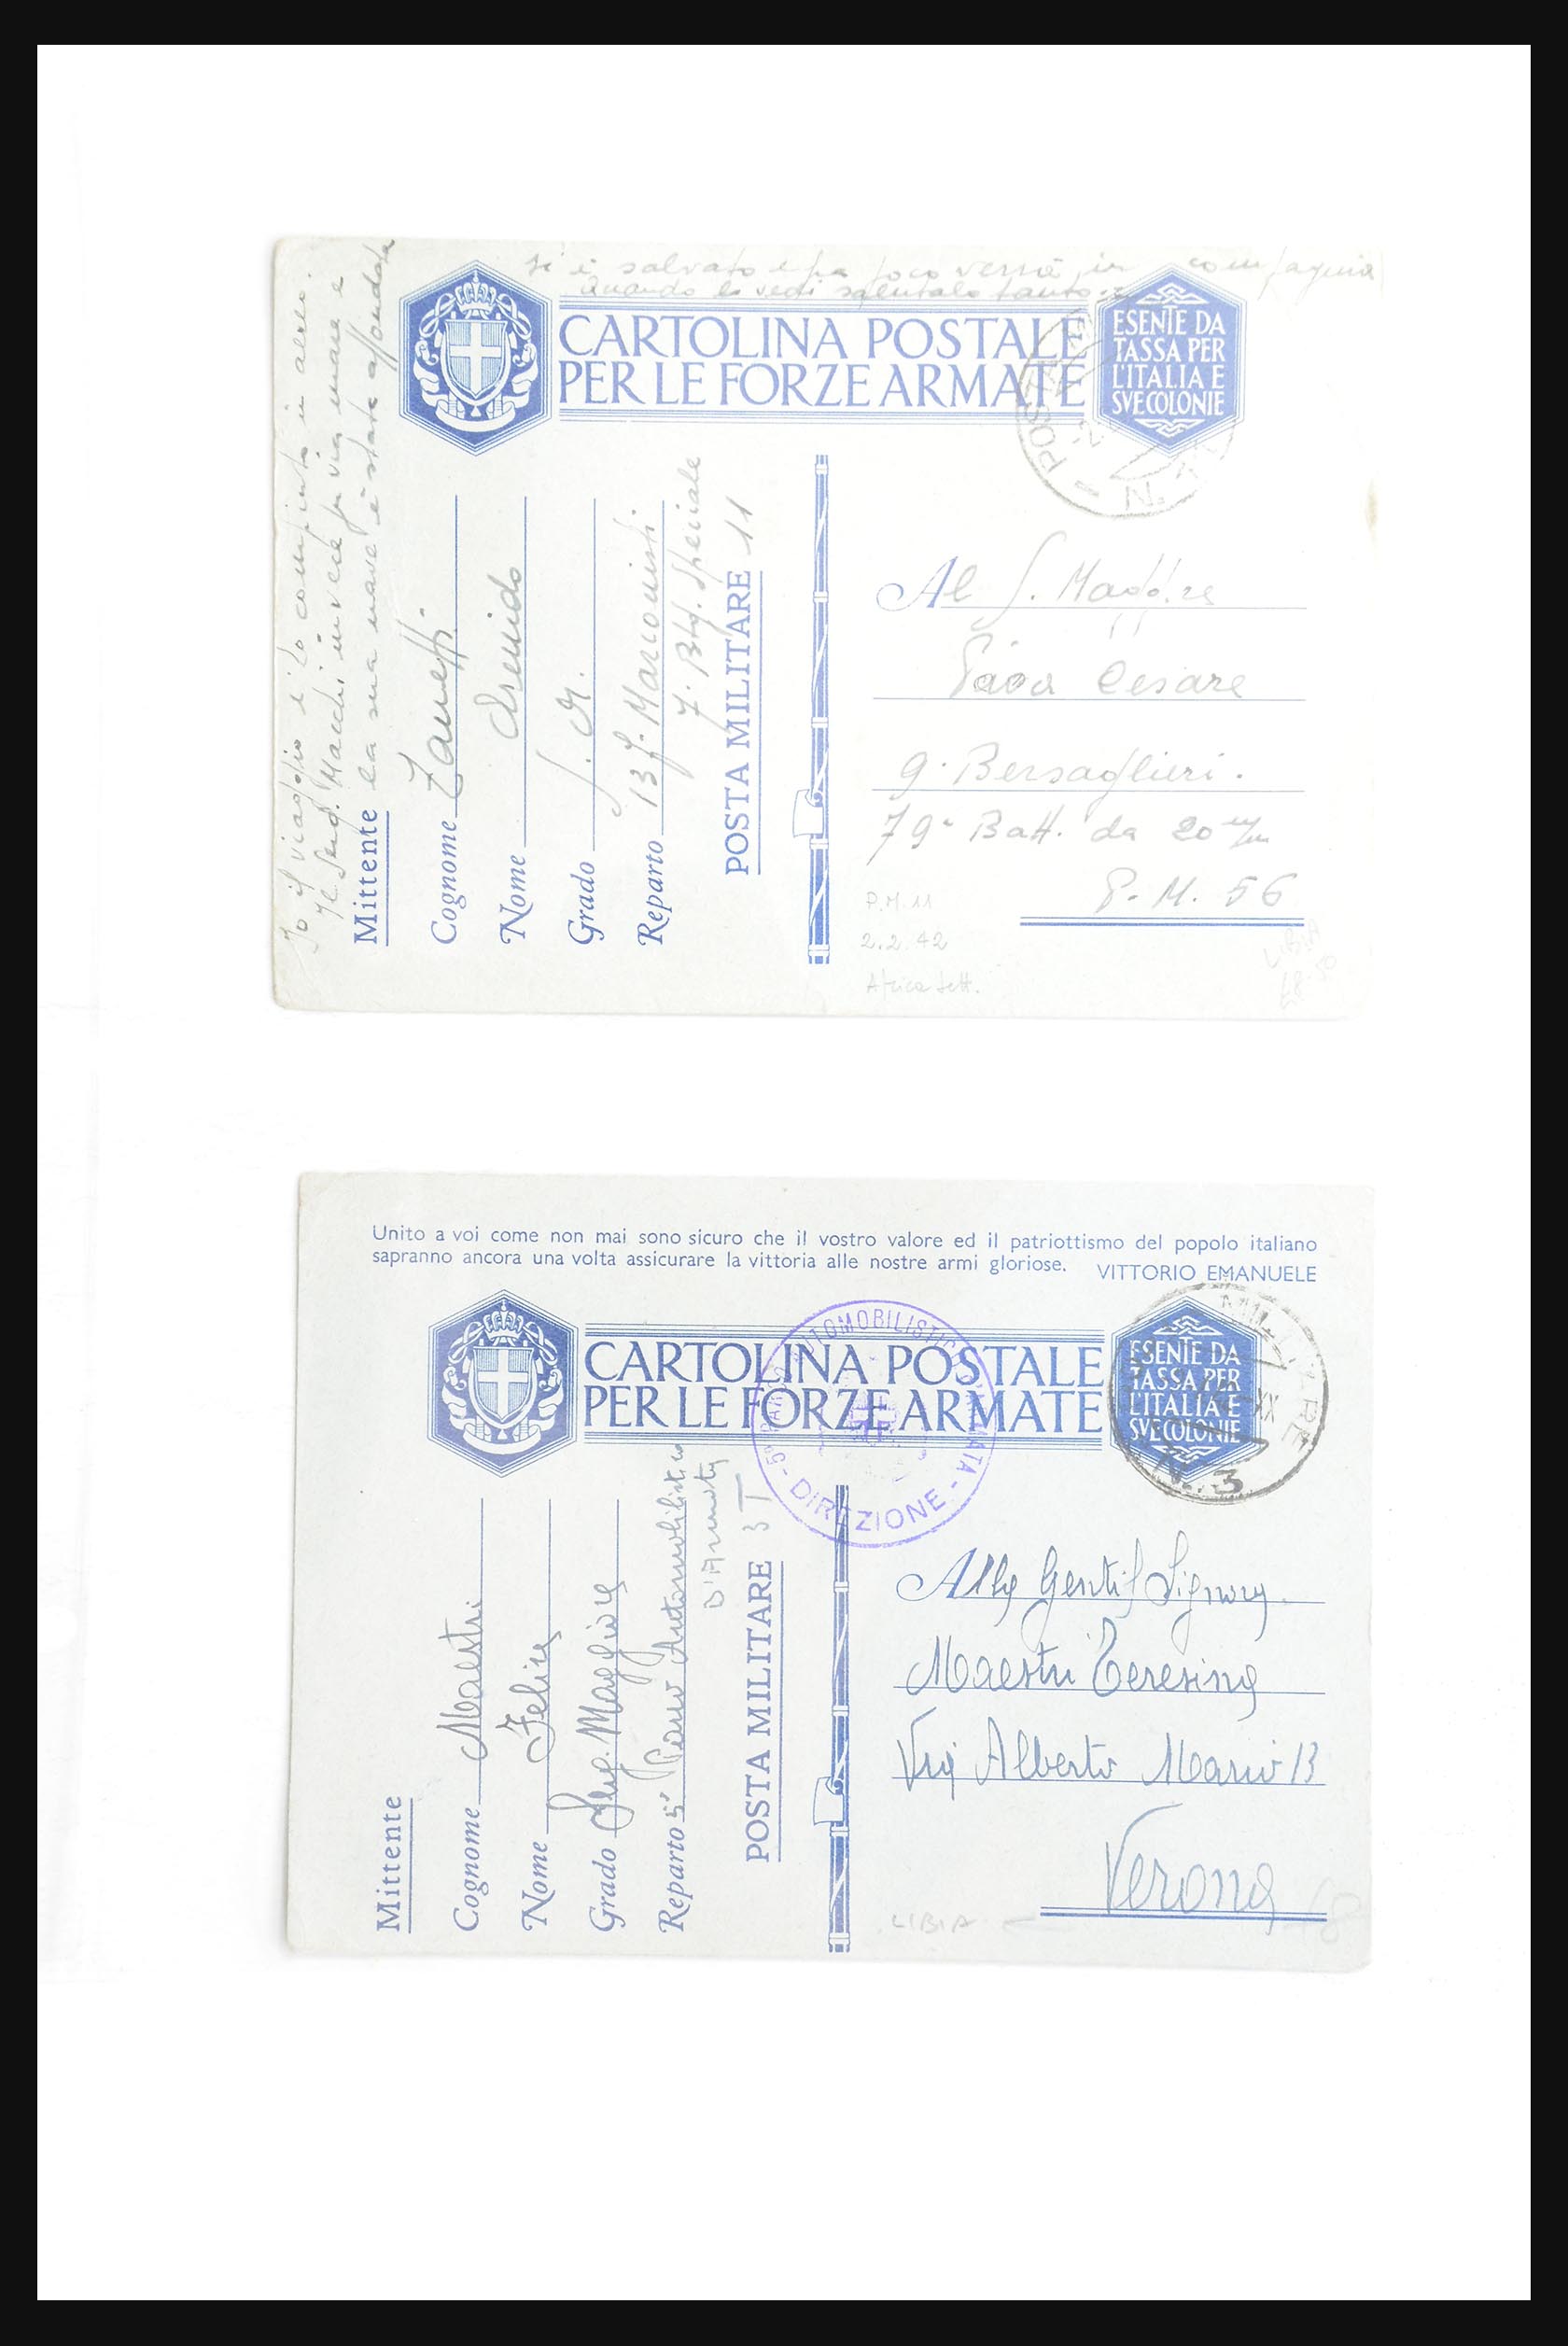 Io il viaggio è lo compiuto in aereo.
Il Serg. Macchi invece per via mare e
la sua nave è stata affondata
si è salvato e fra poco verrà in compagnia
quando lo vedi salutalo tanto.
CARTOLINA POSTALE
PER LE FORZE ARMATE
ESENTE DA
TASSA PER
L'ITALIA E
SVE COLONIE
POSTA
N.
Mittente
Cognome Zanetti
Nome
Grado S. M.
Reparto 13 f. Marconisti
7. Btg. Speciale
POSTA MILITARE 11
Al S. Maggre
Cesare
9. Bersaglieri.
79. Batt. da 20 m/m
P.M. 56
P.M. 11
2.2.42
Africa Sett.
LIBIA
Unito a voi come non mai sono sicuro che il vostro valore ed il patriottismo del popolo italiano
sapranno ancora una volta assicurare la vittoria alle nostre armi gloriose. VITTORIO EMANUELE
CARTOLINA POSTALE
PER LE FORZE ARMATE
ESENTE DA
TASSA PER
L'ITALIA E
SVE COLONIE
5° PARCO AUTOMOBILISTICO D'ARMATA
- DIREZIONE -
XX
N. 3
Mittente
Cognome Maestri
Nome Felice
Grado Serg. Maggiore
Reparto 5° Parco Automobilistico
D'Armata
POSTA MILITARE 3 T
Alla Gentil Signora
Maestri Teresina
Via Alberto Mario 13
Verona
LIBIA